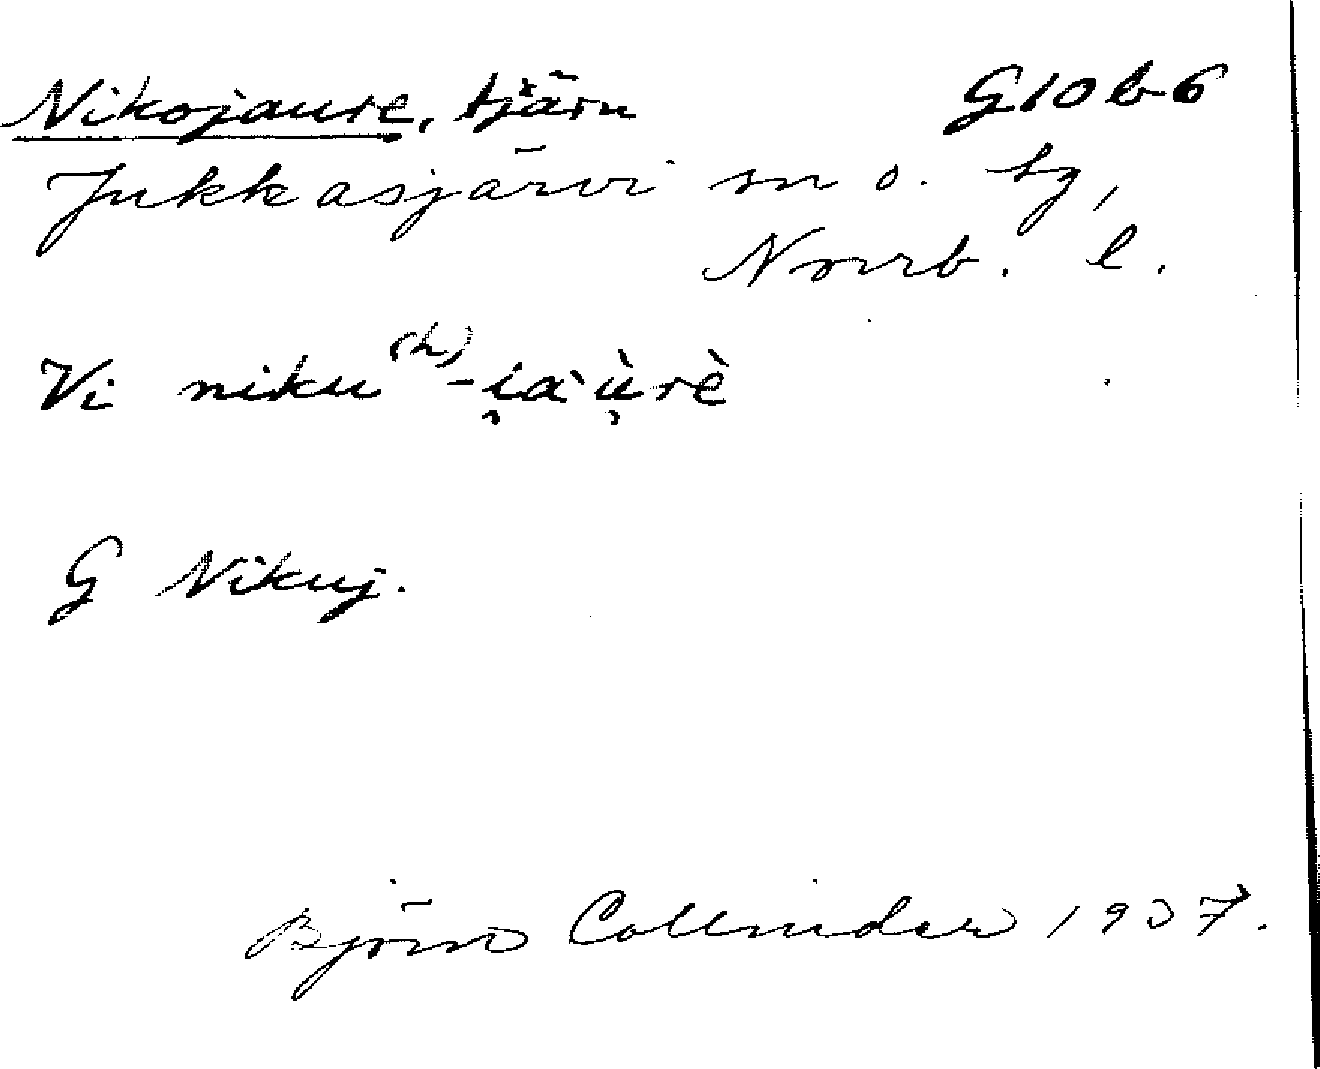 Nikojaure, tjärn G10b6
Jukkasjärvi sn o. tg,
Norrb. l.
Vi niku⁽ʰ⁾-i̯àù̯rè
G Nikuj.
Björn Collinder 1937.